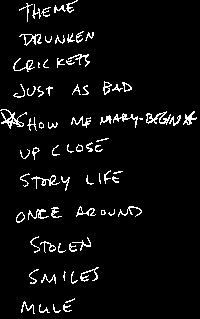 THEME
DRUNKEN
CRICKETS
JUST AS BAD
☆SHOW ME MARY-BEGIN☆
UP CLOSE
STORY LIFE
ONCE AROUND
STOLEN
SMILES
MULE